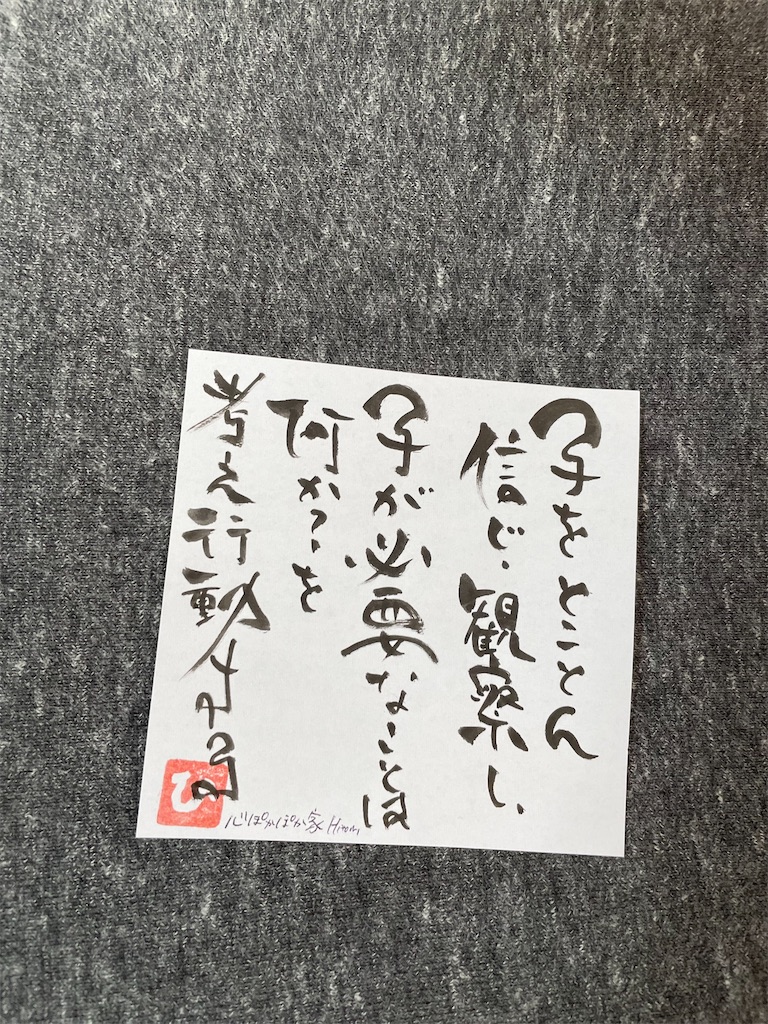 子をとことん
信じ、観察し、
子が必要なことは
何かを
考え行動する
ひ
心ぽかぽか家 Hiromi